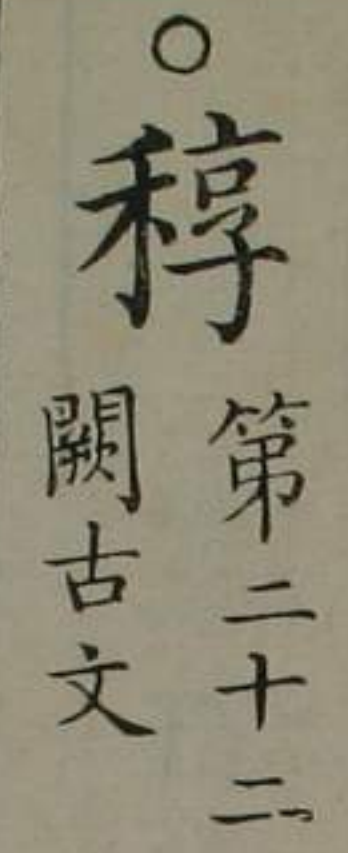 ○
稕
第二十二
闕古文